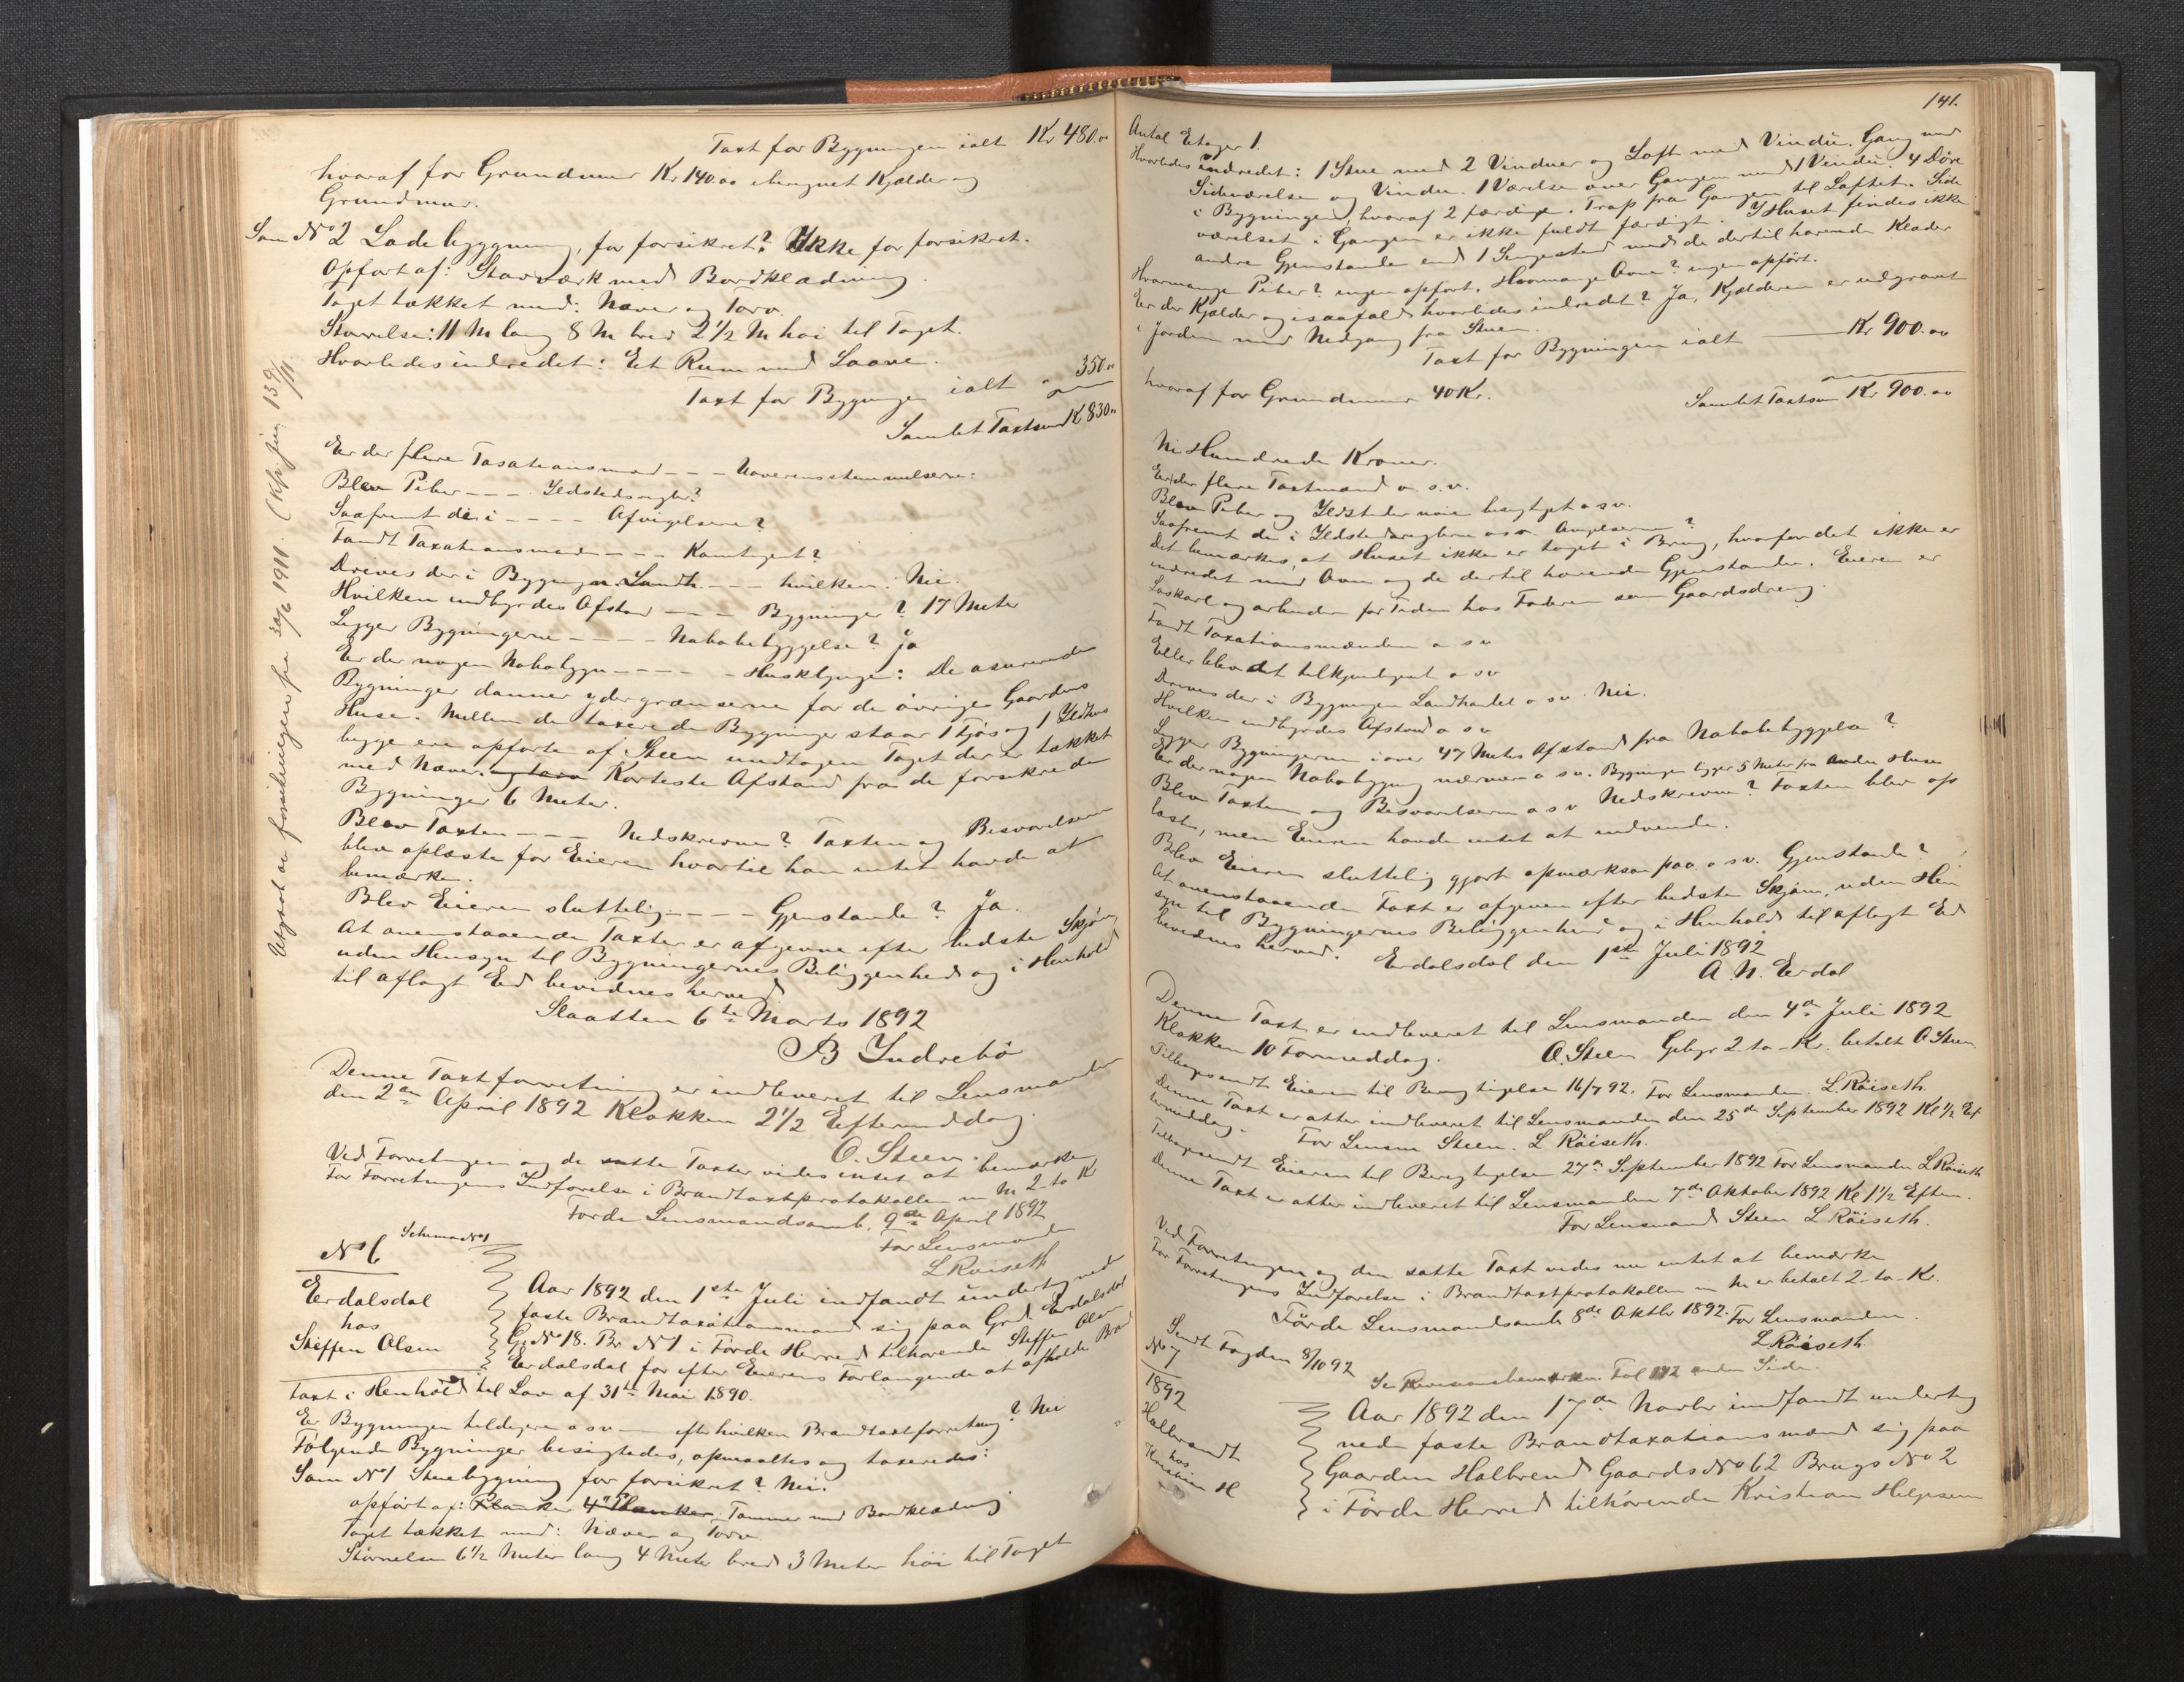 Taxt for Bygningen ialt Kr 480.00
hvoraf for Grundmur Kr 140.00 iberegnet Kjælder og
Grundmur.
Som No 2 Ladebyggning, før forsikret? Ikke før forsikret.
Opført af: Stavværk med Bordklædning.
Taget tækket med: Næver og Torv.
Størrelse: 11 M lang 8 M bred 2 1/2 M høi til Taget.
Hvorledes indredet: Et Rum med Laave.
Taxt for Bygningen ialt " 350 "
Samlet Taxtsum Kr 830 "
Er der flere Taxationsmænd - - - Uoverensstemmelserne:
Blev Piber - - - Ildstedsregler?
Saafremt de i - - - - Afvigelserne?
Fandt Taxationsmænd - - - Kontigent?
Drives der i Bygningen Landh. - - - hvilken: Nei.
Hvilken indbyrdes Afstand - - - Bygninger? 17 Meter
Ligger Bygningerne - - - - Nabobebyggelse? Ja
Er der nogen Nabobygn - - - - Husklynge: De assurerede
Bygninger danner ydergrænserne for de øvrige Gaardens
Huse. Mellem de taxerede Bygninger staar 1 Fjøs og 1 Ildhus
begge ere opførte af Steen undtagen Taget der er tækket
med Næver og torv Korteste Afstand fra de forsikrede
Bygninger 6 Meter.
Blev Taxten - - - Nedskrevne? Taxten og Besvarelserne
blev oplæste for Eieren hvortil han intet havde at
bemærke.
Blev Eieren sluttelig - - - - Gjenstande? Ja.
At ovenstaaende Taxter er afgivne efter bedste Skjøn
uden Hensyn til Bygningernes Beliggenhed og i Henhold
til aflagt Ed bevidnes herved
Slaatten 6te Marts 1892
B Indrebö
Denne Taxtforretning er indleveret til Lensmanden
den 2den April 1892 Klokken 2 1/2 Eftermiddag.
O. Steen.
Ved Forretningen og de satte Taxter vides intet at bemærke
For Forretningens Indførelse i Brandtaxtprotokollen m M 2-to Kr
Førde Lensmandsomb. 9de April 1892
For Lensmanden
L Røiseth
Utgaat av forsikringen fra 30/6 1911. (Kfr. jnr. 139/11
Schema No 1
No 6
Erdalsdal
hos
Steffen Olsen
Aar 1892 den 1ste Juli indfandt undertegnede
faste Brandtaxationsmænd sig paa Grd. Erdalsdal
G. No 18. Br No 1 i Förde Herred tilhørende Steffen Olsen
Erdalsdal for efter Eierens Forlangende at afholde Brand
taxt i Henhold til Lov af 31te Mai 1890.
Er Bygningen tidligere o s v — efter hvilken Brandtaxtforretning? Nei
Følgende Bygninger besigtedes, opmaaltes og taxeredes:
Som No 1 Stuebygning før forsikret? Nei.
opført af: Planker 4" Planker. Tømmer med Bordklædning
Taget tækket med: Næver og Torv
Størrelse 6 1/2 Meter lang 4 Meter bred 3 Meter høi til Taget
141.
Antal Etager 1.
Hvorledes indredet: 1 Stue med 2 Vinduer og Loft med Vindu. Gang med
Sideværelse og Vindu. 1 Værelse over Gangen med 1 Vindu. 4 Døre
i Bygningen, hvoraf 2 færdige. Trap fra Gangen til Loftet. Side
værelset i Gangen er ikke fuldt færdigt. I Huset findes ikke
andre Gjenstande end 1 Sengested med de dertil hørende Klæder
Hvormange Piber? ingen opført. Hvormange Ovne? ingen opført.
Er der Kjelder og isaafald hvorledes indredet? Ja, Kjælderen er udgravet
i Jorden med Nedgang fra Stuen.
Taxt for Bygningen ialt — Kr 900.00
hvoraf for Grundmur 40 Kr.
Samlet Taxtsum Kr. 900.00
Ni Hundrede Kroner.
Er der flere Taxtmænd o. s. v.
Blev Piber og Ildsteder nøie besigtiget o s v.
Saafremt de i Ildstedsreglerne o s v. Avigelserne?
Det bemærkes, at Huset ikke er taget i Brug, hvorfor det ikke er
indredet med Ovn og de dertil hørende Gjenstande. Eieren er
Løskarl og arbeider for Tiden hos Faderen som Gaardsdreng
Fandt Taxationsmændene o s v
Eller blev det tilkjendegivet o s v
Drives der i Bygningen Landhandel o s v. Nei.
Hvilken indbyrdes Afstand o s v
Ligger Bygningerne i over 47 Meters Afstand fra Nabobebyggelse?
Er der nogen Nabobygning nærmere o s v. Bygningen ligger 5 Meter fra Andre Huse
Blev Taxten og Besvarelserne o s v Nedskrevne? Taxten blev op
læst, men Eieren havde intet at indvende.
Blev Eieren sluttelig gjort opmærksom paa o s v. Gjenstande?
At ovenstaaende Taxt er afgiven efter bedste Skjøn, uden Hen
syn til Bygningernes Beliggenhed og i Henhold til aflagt Ed
bevidnes herved.
Erdalsdal den 1ste Juli 1892
A. N. Erdal
Denne Taxt er indleveret til Lensmanden den 4de Juli 1892
Klokken 10 Formiddag. O. Steen Gebyr 2-to Kr. betalt O Steen
Tilbagesendt Eieren til Berigtigelse 16/7 92. For Lensmanden. L Röiseth
Denne Taxt er atter indleveret til Lensmanden den 25de September 1892 Kl 1/2 Ef
termiddag. For Lensm Steen. L Röiseth.
Tilbagesendt Eieren til Berigtigelse 27de September 1892 For Lensmanden L Röiseth
Denne Taxt er atter indleveret til Lensmanden 7de Oktober 1892 Kl 1 1/2 Efterm.
For Lensmand Steen L Röiseth.
Ved Forretningen og den satte Taxt vides nu intet at bemærke
For Forretningens Indførelse i Brandtaxtprotokollen m M er betalt 2-to Kr.
Förde Lensmandsomb 8de Oktbr 1892. For Lensmanden.
L Röiseth.
Sendt Fogden 8/10 92
Se Revisionsbemærkn. Fol 142 anden Side.
No 7
1892
Halbrandt
hos
Kristian H
Aar 1892 den 17de Novbr indfandt underteg
nede faste Brandtaxationsmænd sig paa
Gaarden Halbrend Gaards No 62 Brugs No 2
i Förde Herred tilhörende Kristian Helgesen